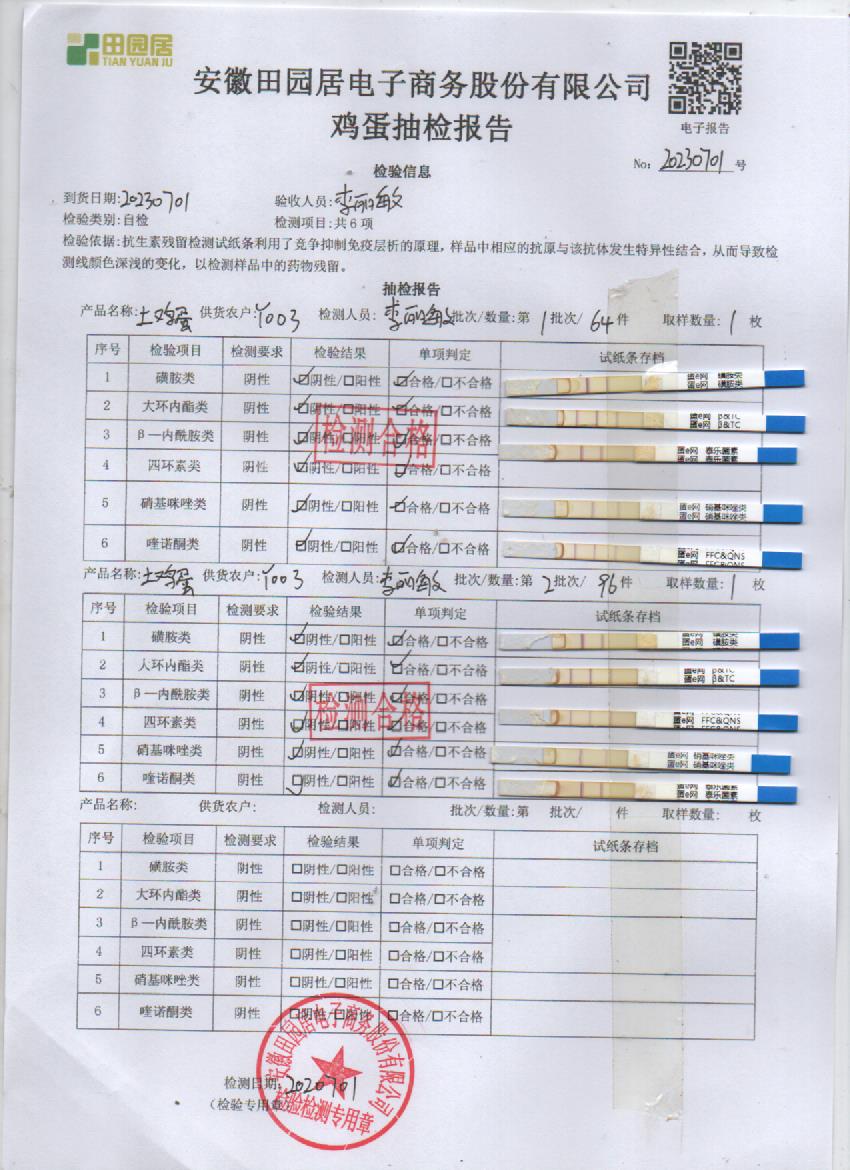 田园居
TIAN YUAN JU
安徽田园居电子商务股份有限公司
鸡蛋抽检报告
电子报告
No: 20230701 号
检验信息
到货日期:20230701 验收人员:李丽敏
检验类别:自检 检测项目:共6项
检验依据:抗生素残留检测试纸条利用了竞争抑制免疫层析的原理,样品中相应的抗原与该抗体发生特异性结合,从而导致检
测线颜色深浅的变化,以检测样品中的药物残留。
抽检报告
产品名称:土鸡蛋 供货农户:Y003 检测人员:李丽敏 批次/数量:第 1 批次/ 64 件 取样数量: 1 枚
序号 检验项目 检测要求 检验结果 单项判定 试纸条存档
1 磺胺类 阴性 ☑阴性/☐阳性 ☑合格/☐不合格 蛋e网 磺胺类
蛋e网 磺胺类
2 大环内酯类 阴性 ☑阴性/☐阳性 ☑合格/☐不合格 蛋e网 β&TC
蛋e网 β&TC
3 β一内酰胺类 阴性 ☑阴性/☐阳性 ☑合格/☐不合格 蛋e网 泰乐菌素
蛋e网 泰乐菌素
4 四环素类 阴性 ☑阴性/☐阳性 ☑合格/☐不合格
检测合格
5 硝基咪唑类 阴性 ☑阴性/☐阳性 ☑合格/☐不合格 蛋e网 硝基咪唑类
蛋e网 硝基咪唑类
6 喹诺酮类 阴性 ☑阴性/☐阳性 ☑合格/☐不合格 蛋e网 FFC&QNS
蛋e网 FFC&QNS
产品名称:土鸡蛋 供货农户:Y003 检测人员:李丽敏 批次/数量:第 2 批次/ 96 件 取样数量: 1 枚
序号 检验项目 检测要求 检验结果 单项判定 试纸条存档
1 磺胺类 阴性 ☑阴性/☐阳性 ☑合格/☐不合格 蛋e网 磺胺类
蛋e网 磺胺类
2 大环内酯类 阴性 ☑阴性/☐阳性 ☑合格/☐不合格 蛋e网 β&TC
蛋e网 β&TC
3 β一内酰胺类 阴性 ☑阴性/☐阳性 ☑合格/☐不合格 蛋e网 FFC&QNS
4 四环素类 阴性 ☑阴性/☐阳性 ☑合格/☐不合格 蛋e网 FFC&QNS
检测合格
5 硝基咪唑类 阴性 ☑阴性/☐阳性 ☑合格/☐不合格 蛋e网 硝基咪唑类
蛋e网 硝基咪唑类
6 喹诺酮类 阴性 ☑阴性/☐阳性 ☑合格/☐不合格 蛋e网 泰乐菌素
蛋e网 泰乐菌素
产品名称: 供货农户: 检测人员: 批次/数量:第 批次/ 件 取样数量: 枚
序号 检验项目 检测要求 检验结果 单项判定 试纸条存档
1 磺胺类 阴性 ☐阴性/☐阳性 ☐合格/☐不合格
2 大环内酯类 阴性 ☐阴性/☐阳性 ☐合格/☐不合格
3 β一内酰胺类 阴性 ☐阴性/☐阳性 ☐合格/☐不合格
4 四环素类 阴性 ☐阴性/☐阳性 ☐合格/☐不合格
5 硝基咪唑类 阴性 ☐阴性/☐阳性 ☐合格/☐不合格
6 喹诺酮类 阴性 ☐阴性/☐阳性 ☐合格/☐不合格
安徽田园居电子商务股份有限公司
检验检测专用章
检测日期:2020701
(检验专用章)